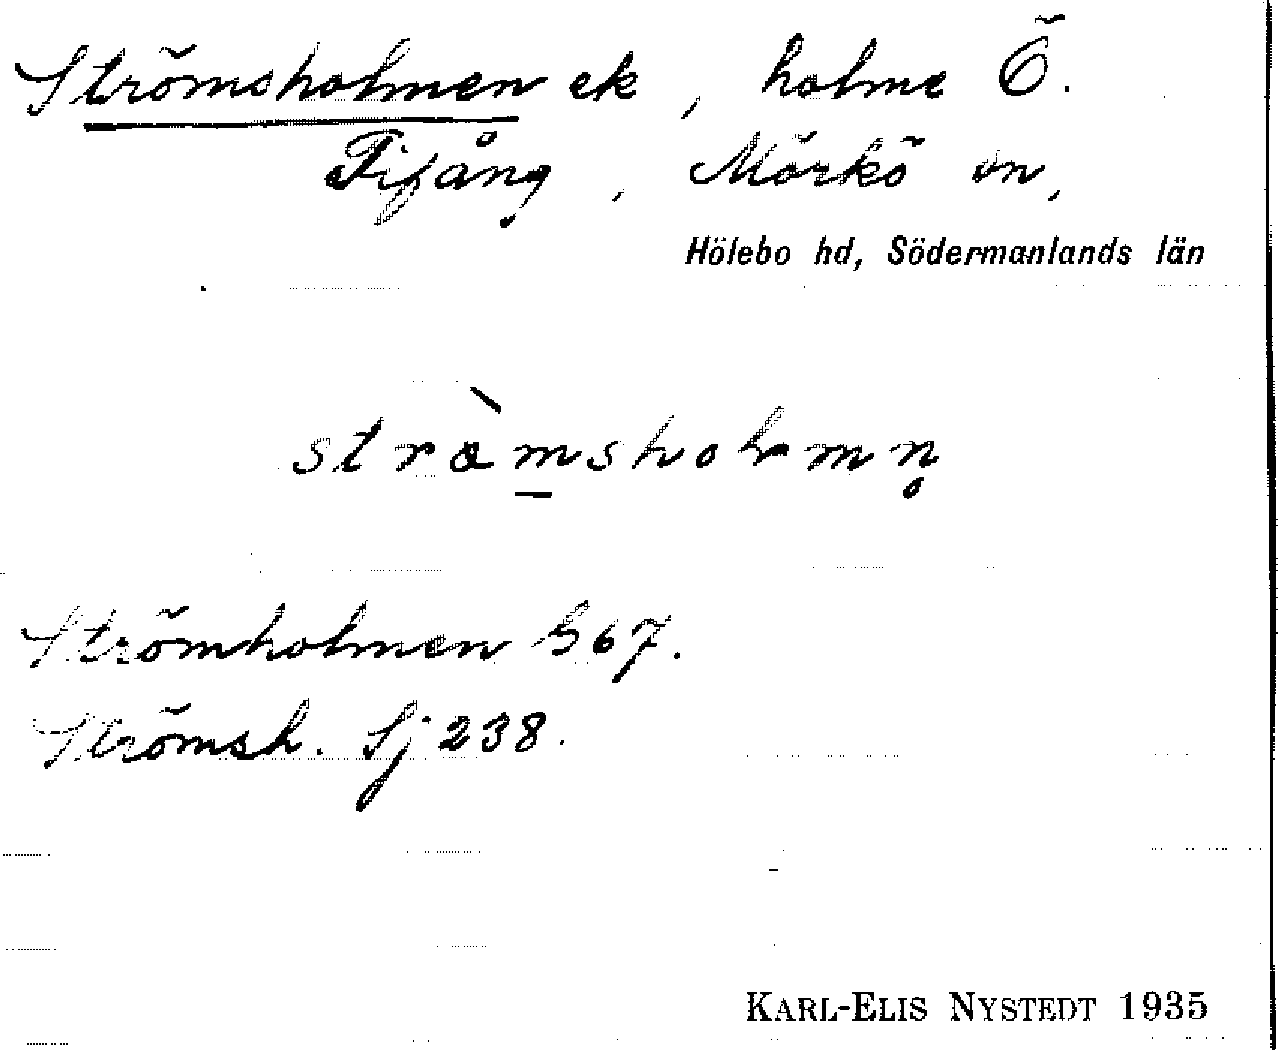 Strömsholmen ek, holme Ö.
Fifång, Mörkö sn,
Hölebo hd, Södermanlands län
Strömholmen h67.
Strömsh. Sj 238.
KARL-ELIS NYSTEDT 1935